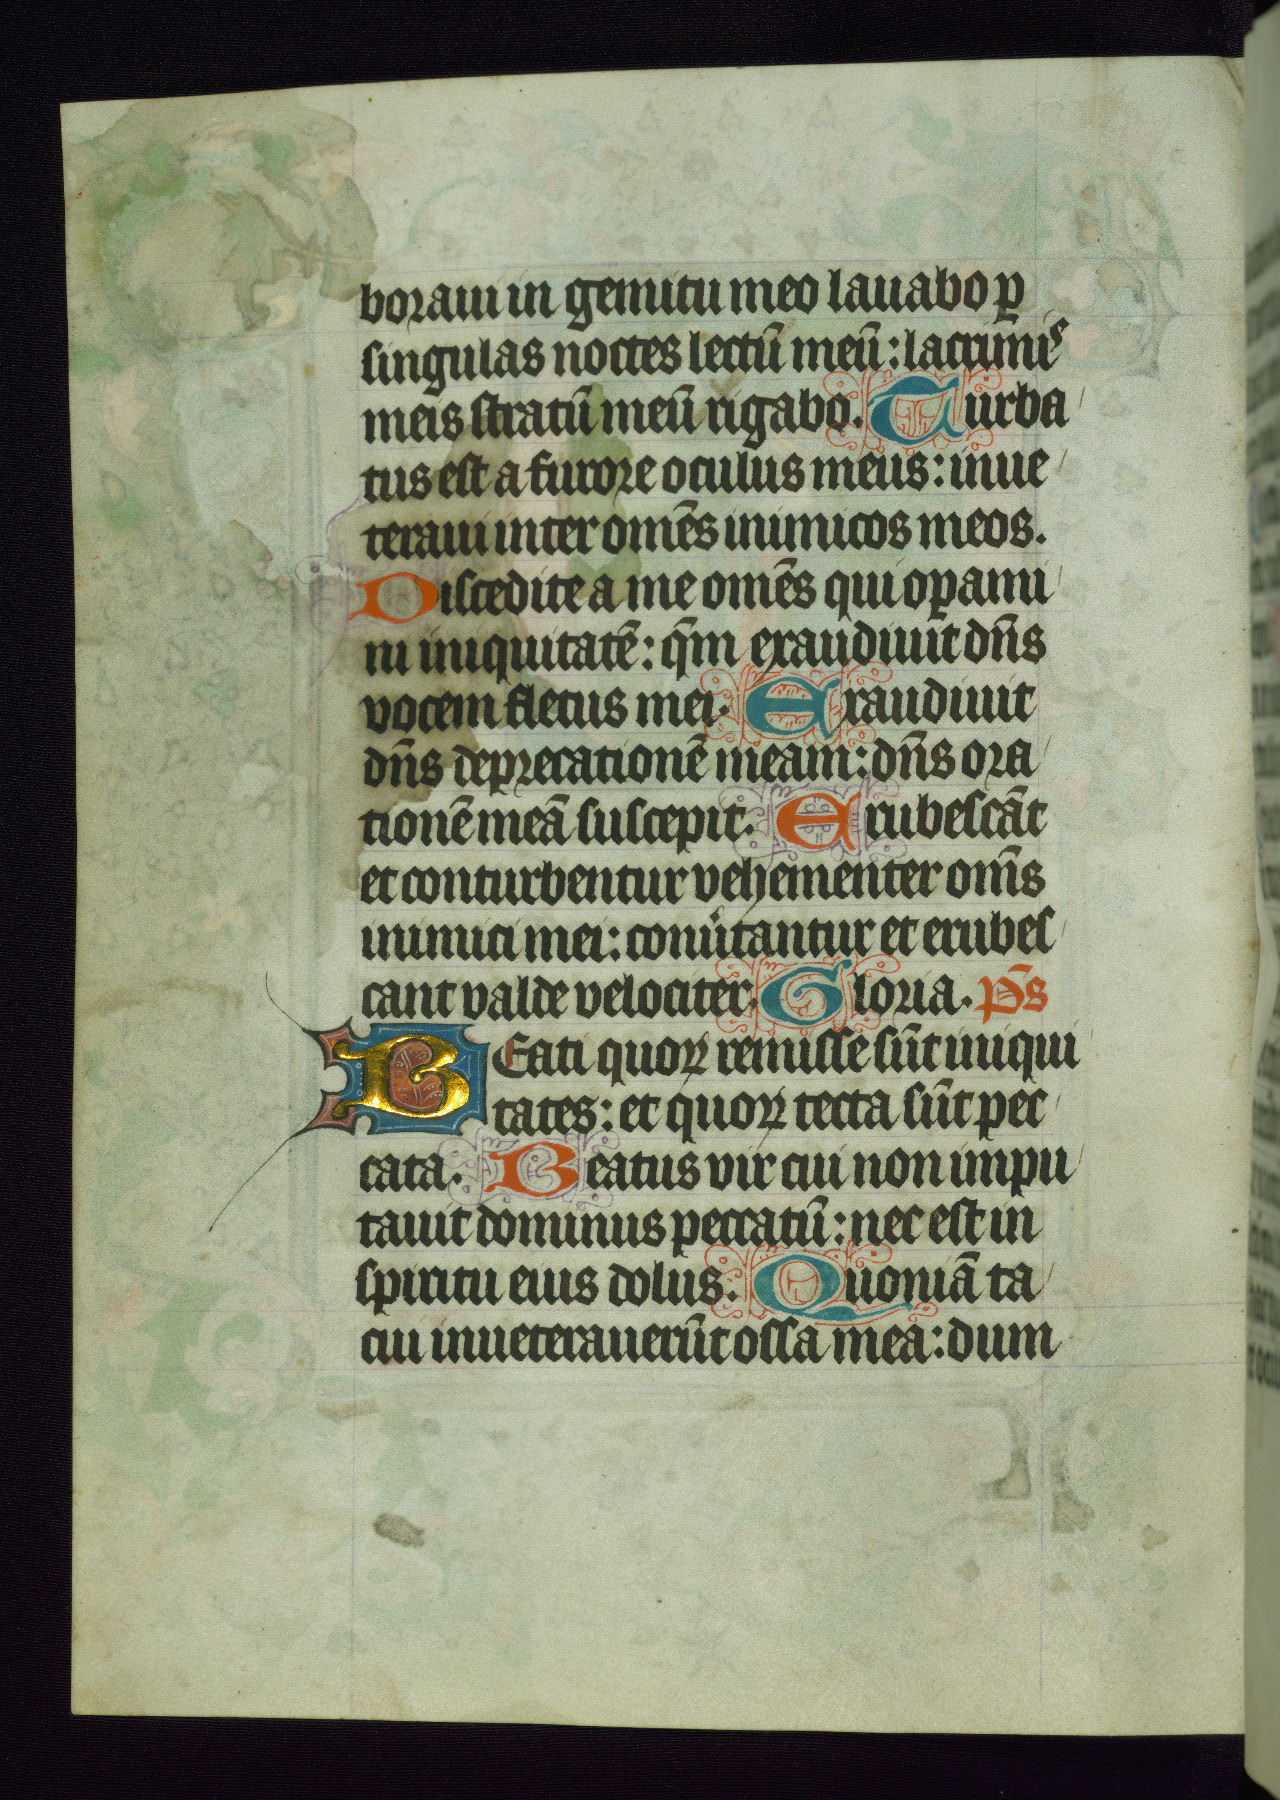 boraui in gemitu meo lauabo ꝑ
singulas noctes lectū meū : lacrimis
meis stratū meū rigabo. Turba
tus est a furore oculus meus : inue
teraui inter omēs inimicos meos.
Discedite a me omēs qui oꝑami
ni iniquitatē : qm̄ exaudiuit dn̄s
vocem fletus mei. Exaudiuit
dn̄s deprecationē meam : dn̄s ora
tionē meā suscepit. Erubescāt
et conturbentur vehementer om̄s
inimici mei : conu̓tantur et erubes
cant valde velociter. Gloria. p̄s
BEati quoꝝ remisse sūt iniqui
tates : et quoꝝ tecta sūt pec
cata. Beatus vir cui non impu
tauit dominus peccatū : nec est in
spiritu eius dolus. Quoniā ta
cui inueterauerūt ossa mea : dum